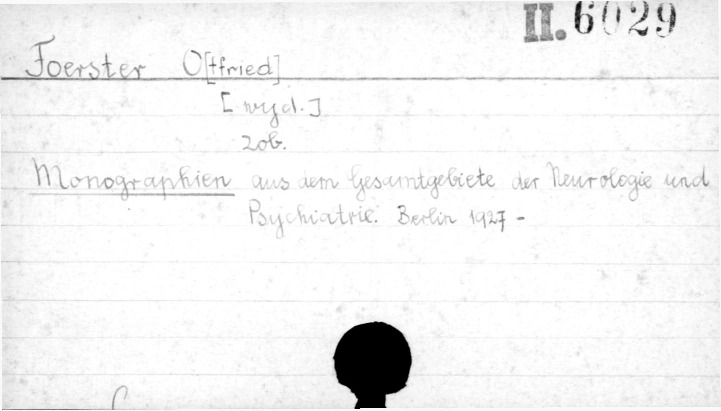 II. 6029
Foerster O[tfried]
[wyd.]
zob.
Monographien aus dem Gesamtgebiete der Neurologie und
Psychiatrie. Berlin 1927 -